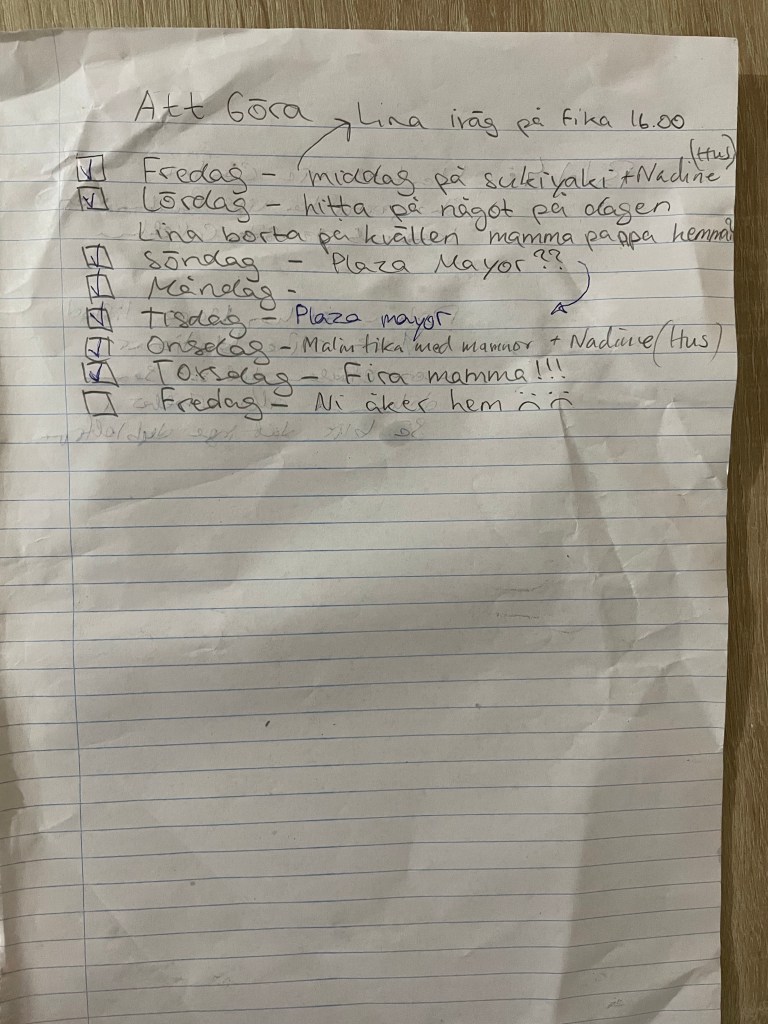 Att Göra
Lina iväg på fika 16.00
Fredag - middag på sukiyaki + Nadine (Hus)
Lördag - hitta på något på dagen
Lina borta på kvällen mamma pappa hemma?
Söndag - Plaza Mayor??
Måndag -
Tisdag - Plaza mayor
Onsdag - Malin fika med mammor + Nadine (Hus)
Torsdag - Fira mamma!!!
Fredag - Ni åker hem